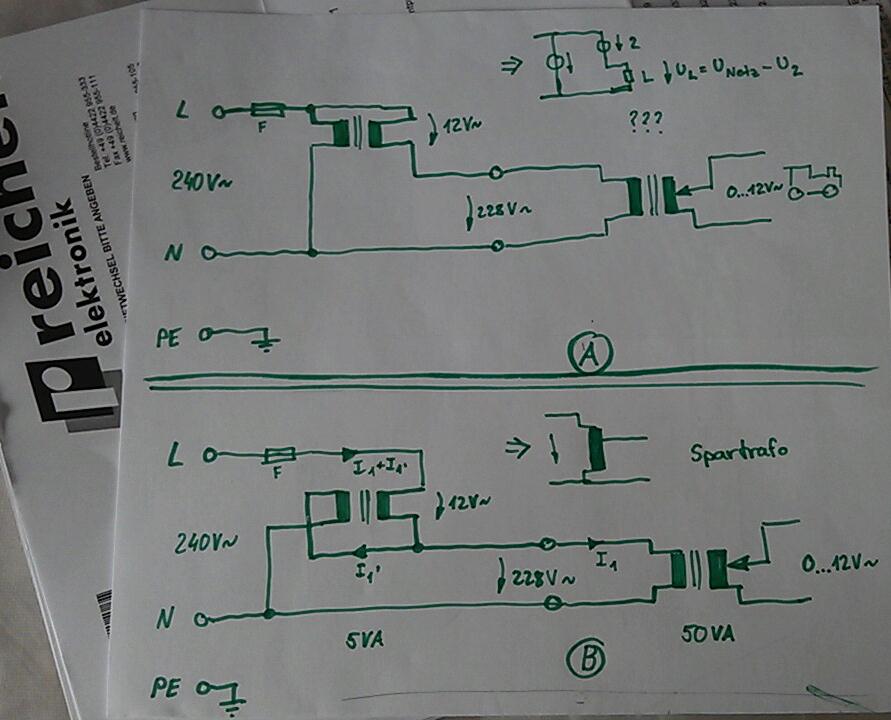 reichel
elektronik
Bestellhotline
Tel. +49 (0)4422 955-333
Fax +49 (0)4422 955-111
2
L
U_L = U_Netz - U_2
???
L
F
12V~
240V~
228V~
0...12V~
N
PE
A
L
F
I_1+I_1'
Spartrafo
12V~
240V~
I_1'
228V~
I_1
0...12V~
N
5VA
50VA
B
PE